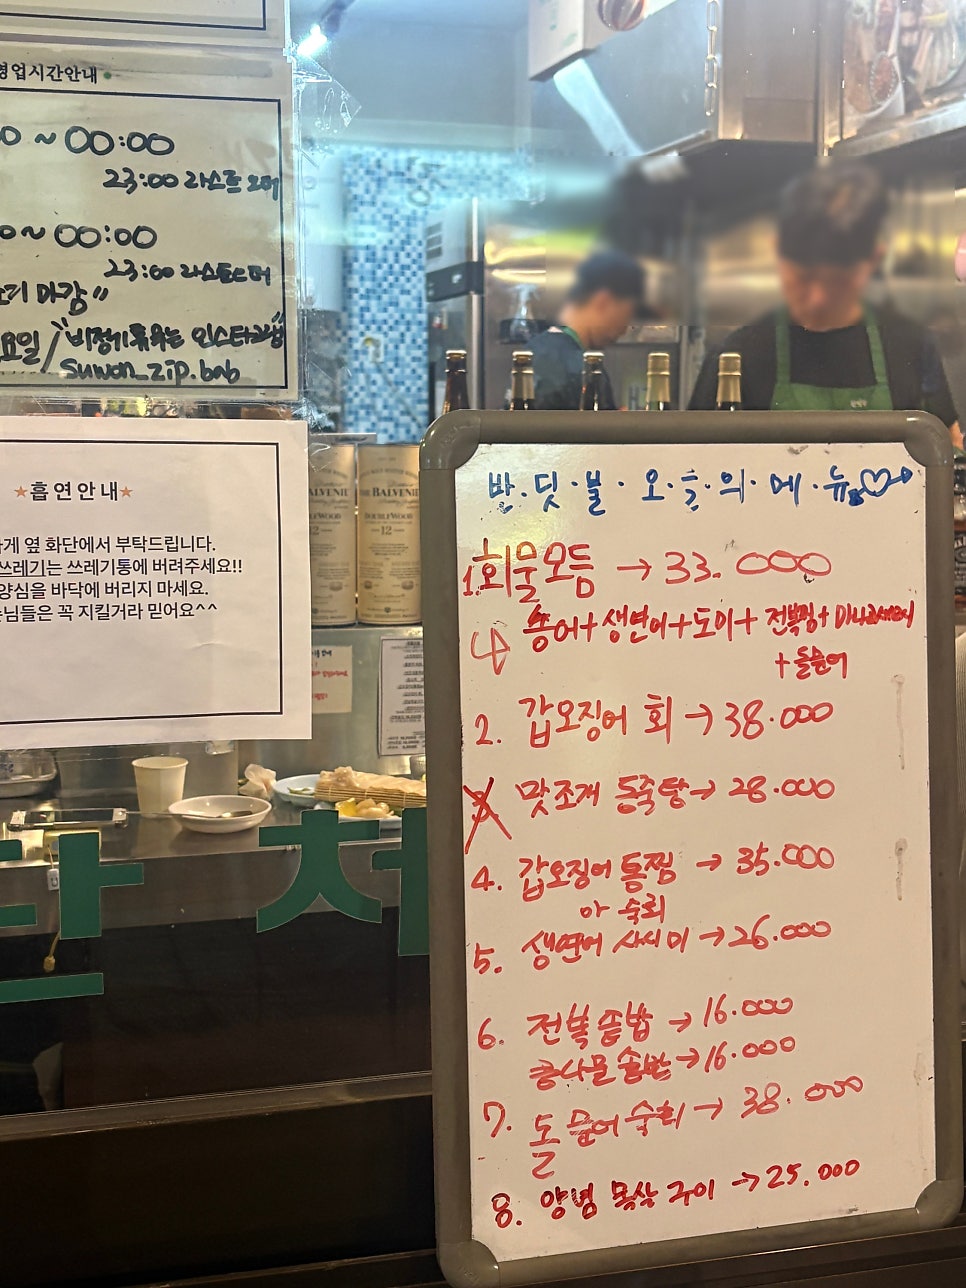 영업시간안내
0 ~ 00:00
23:00 라스트오더
0 ~ 00:00
23:00 라스트오더
마감"
요일 / "비정기휴무는 인스타그램"
suwon_zip.bab
★흡연안내★
가게 옆 화단에서 부탁드립니다.
쓰레기는 쓰레기통에 버려주세요!!
양심을 바닥에 버리지 마세요.
손님들은 꼭 지킬거라 믿어요^^
BALVENIE
THE BALVENIE
DOUBLEWOOD
12
반.딧.불.오.늘.의.메.뉴
1. 회모듬 → 33.000
숭어+생연어+도미+전복찜+
+돌문어
2. 갑오징어 회 → 38.000
맛조개 동죽탕 → 28.000
4. 갑오징어 통찜 → 35.000
아 숙회
5. 생연어 사시미 → 26.000
6. 전복솥밥 → 16.000
콩나물솥밥 → 16.000
7. 돌문어숙회 → 38.000
8. 양념 목살 구이 → 25.000